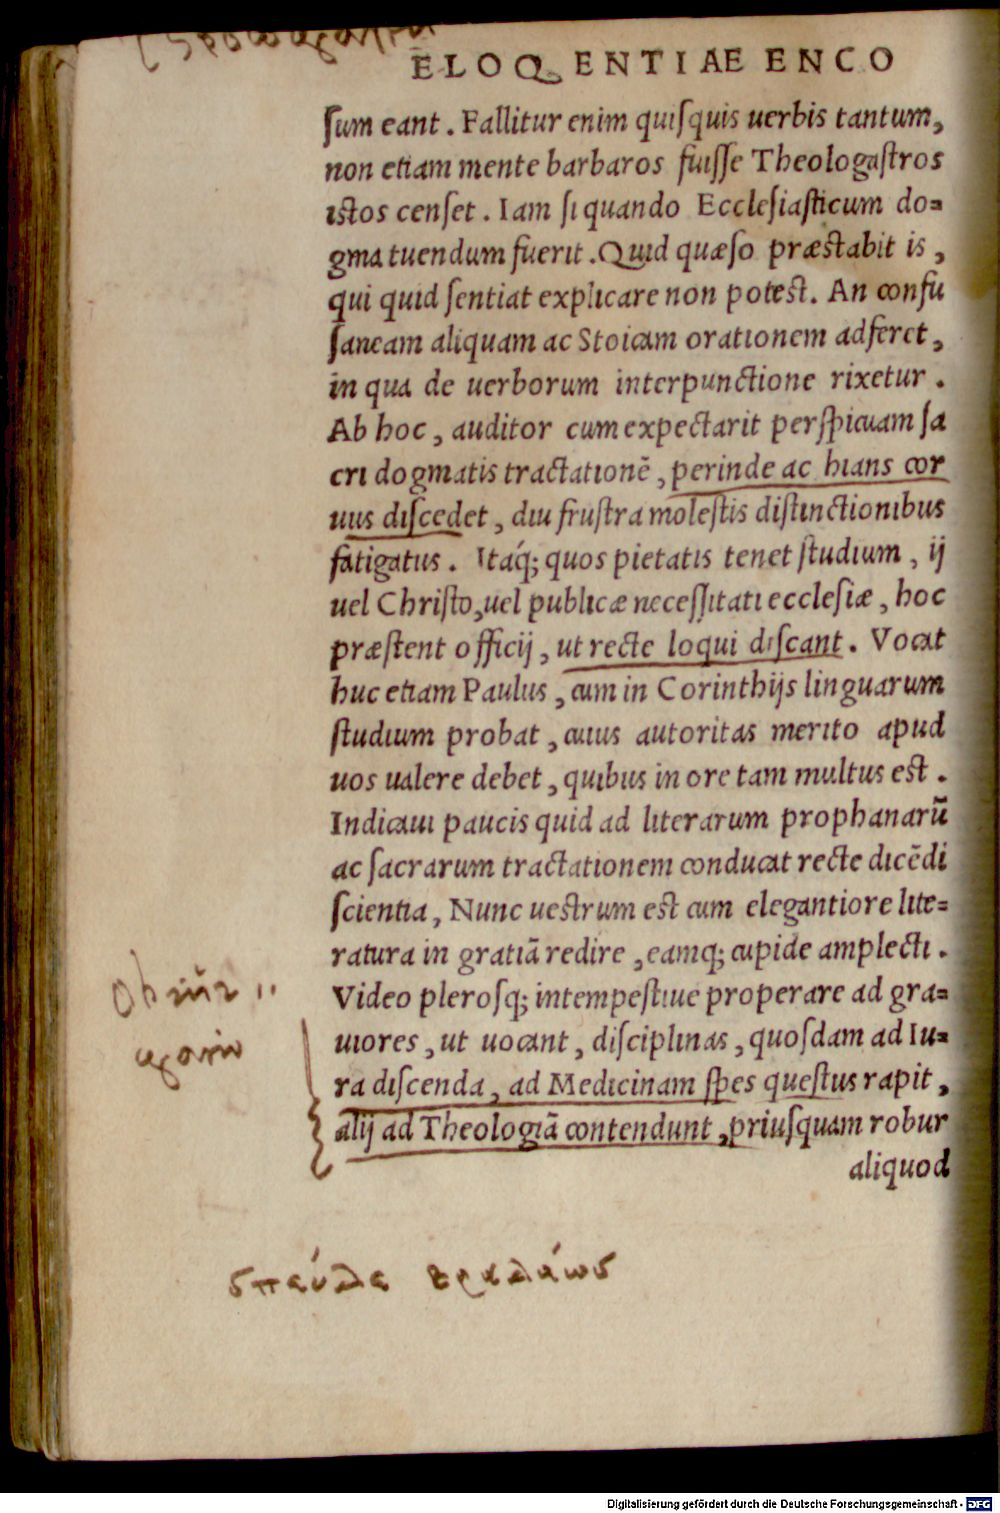 ELOQVENTIAE ENCO
ſum eant. Fallitur enim quiſquis uerbis tantum,
non etiam mente barbaros fuiſſe Theologaſtros
istos cenſet. Iam ſi quando Eccleſiaſticum do=
gma tuendum fuerit. Quid quæſo præſtabit is,
qui quid ſentiat explicare non poteſt. An confu
ſaneam aliquam ac Stoicam orationem adferet,
in qua de uerborum interpunctione rixetur.
Ab hoc, auditor cum expectarit perſpicuam ſa
cri dogmatis tractationẽ, perinde ac hians cor
uus diſcedet, diu fruſtra moleſtis diſtinctionibus
fatigatus. Itáq; quos pietatis tenet ſtudium, ij
uel Chriſto, uel publicæ neceſſitati eccleſiæ, hoc
præſtent officij, ut recte loqui diſcant. Vocat
huc etiam Paulus, cum in Corinthijs linguarum
ſtudium probat, cuius autoritas merito apud
uos ualere debet, quibus in ore tam multus eſt.
Indicaui paucis quid ad literarum prophanarũ
ac ſacrarum tractationem conducat recte dicẽdi
ſcientia, Nunc ueſtrum eſt cum elegantiore lite=
ratura in gratiã redire, eamq; cupide amplecti.
Video pleroſq; intempeſtiue properare ad gra=
uiores, ut uocant, diſciplinas, quoſdam ad Iu=
ra diſcenda, ad Medicinam ſpes queſtus rapit,
alij ad Theologiã contendunt, priuſquam robur
aliquod
σπεύδε βραδέως
Digitalisierung gefördert durch die Deutsche Forschungsgemeinschaft - DFG